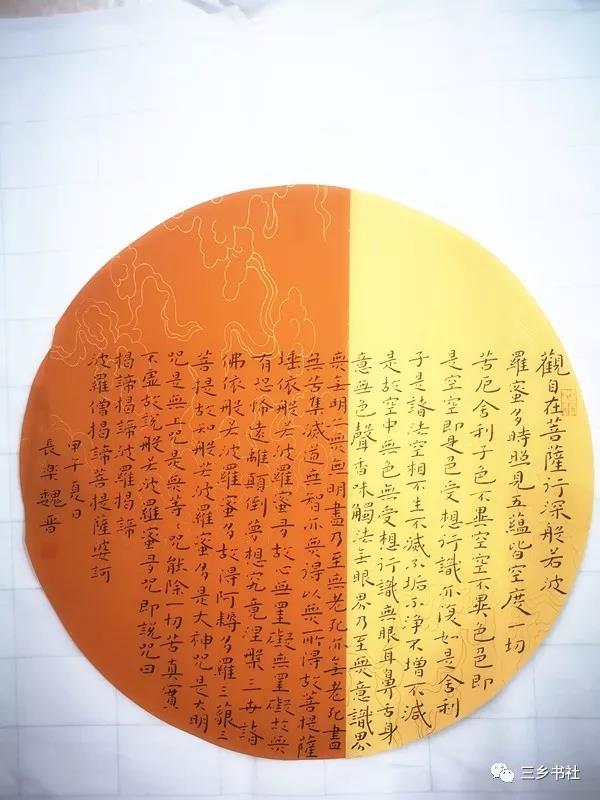 觀自在菩薩行深般若波
羅蜜多時照見五蘊皆空度一切
苦厄舍利子色不異空空不異色色即
是空空即是色受想行識亦復如是舍利
子是諸法空相不生不滅不垢不淨不增不減
是故空中無色無受想行識無眼耳鼻舌身
意無色聲香味觸法無眼界乃至無意識界
無無明亦無無明盡乃至無老死亦無老死盡
無苦集滅道無智亦無得以無所得故菩提薩
埵依般若波羅蜜多故心無罣礙無罣礙故無
有恐怖遠離顛倒夢想究竟涅槃三世諸
佛依般若波羅蜜多故得阿耨多羅三藐三
菩提故知般若波羅蜜多是大神咒是大明
咒是無上咒是無等〻咒能除一切苦真實
不虛故說般若波羅蜜多咒即說咒曰
揭諦揭諦波羅揭諦
波羅僧揭諦菩提薩婆訶
甲午夏日
長樂魏晉
三乡书社